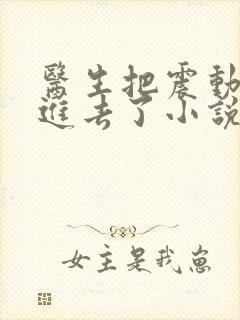 醫生把震動
進去了小說
女主是我崽